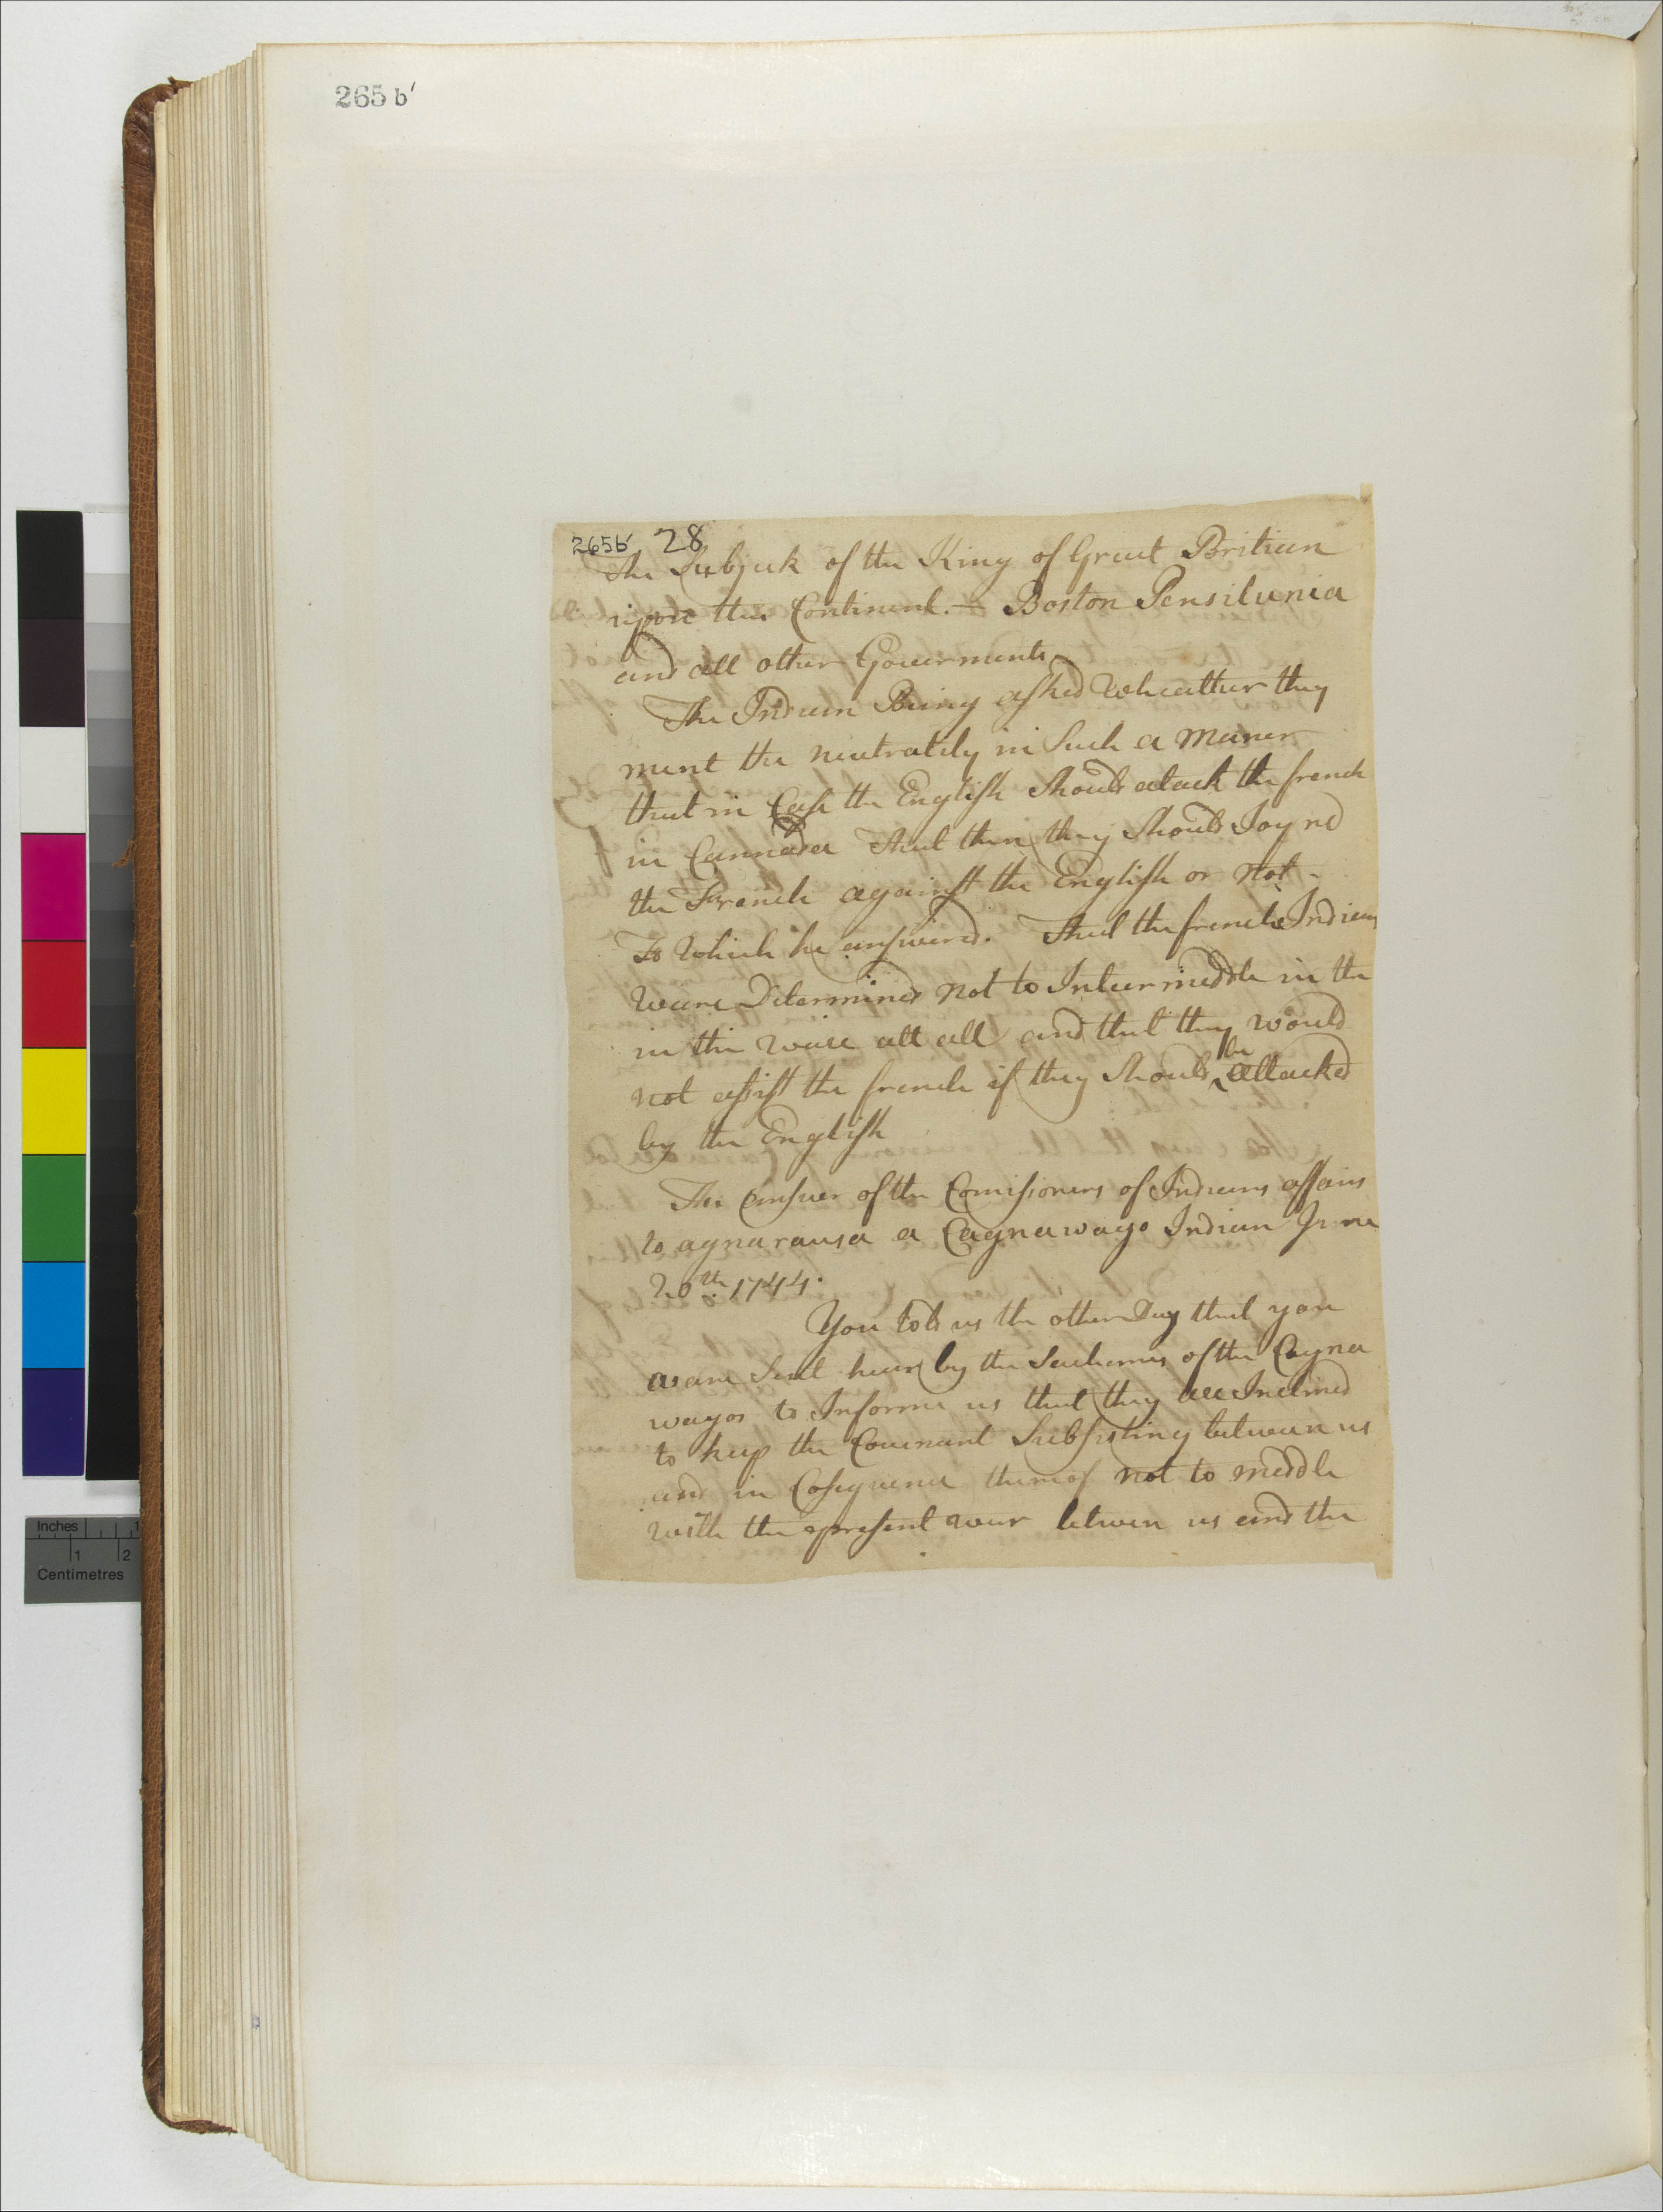 265 b'
265b' 28
The Subjeck of the King of Great Britian
upon this Continent.— Boston Pensilvania
and all other Goverments
The Indian Being asked Wheather they
ment the neutrality in Such a Maner
that in Case the English Should atack the french
in Cannada That then they Should Joyne
the French against the English or Not.
To Which he answered. That the french Indians
Weare Determined Not to Intermeddle in the
in the Ware att all and that they would
not assist the french if they Should be attacked
by the English
The answer of the Comissioners of Indians affairs
to agnarausa a Cagnawago Indian June
20th 1744.
You told us the other Day that you
are Sent hear by the Sachems of the Cagna
wagos to Informe us that they are Inclined
to keep the Covenant Subsisting between us
and in Cosequence thereof not to meddle
With the present war betwen us and the
Inches 1
1 2
Centimetres